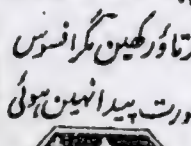 رتاؤ رکھین مگر افسوس
ورت پیدا نہین ہوئی